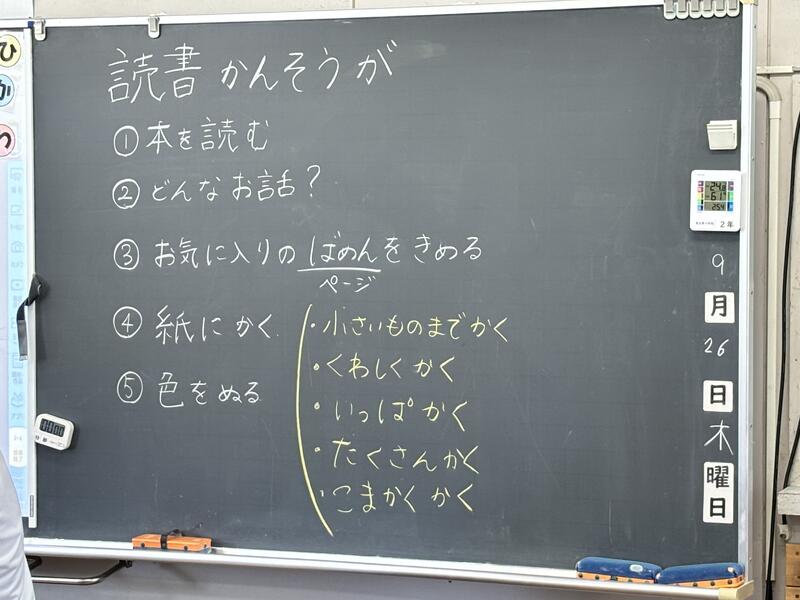 読書かんそうが
①本を読む
②どんなお話?
③お気に入りのばめんをきめる
ページ
④紙にかく
⑤色をぬる
・小さいものまでかく
・くわしくかく
・いっぱかく
・たくさんかく
・こまかくかく
9
月
26
日
木
曜
日
2年
ひ
か
つ